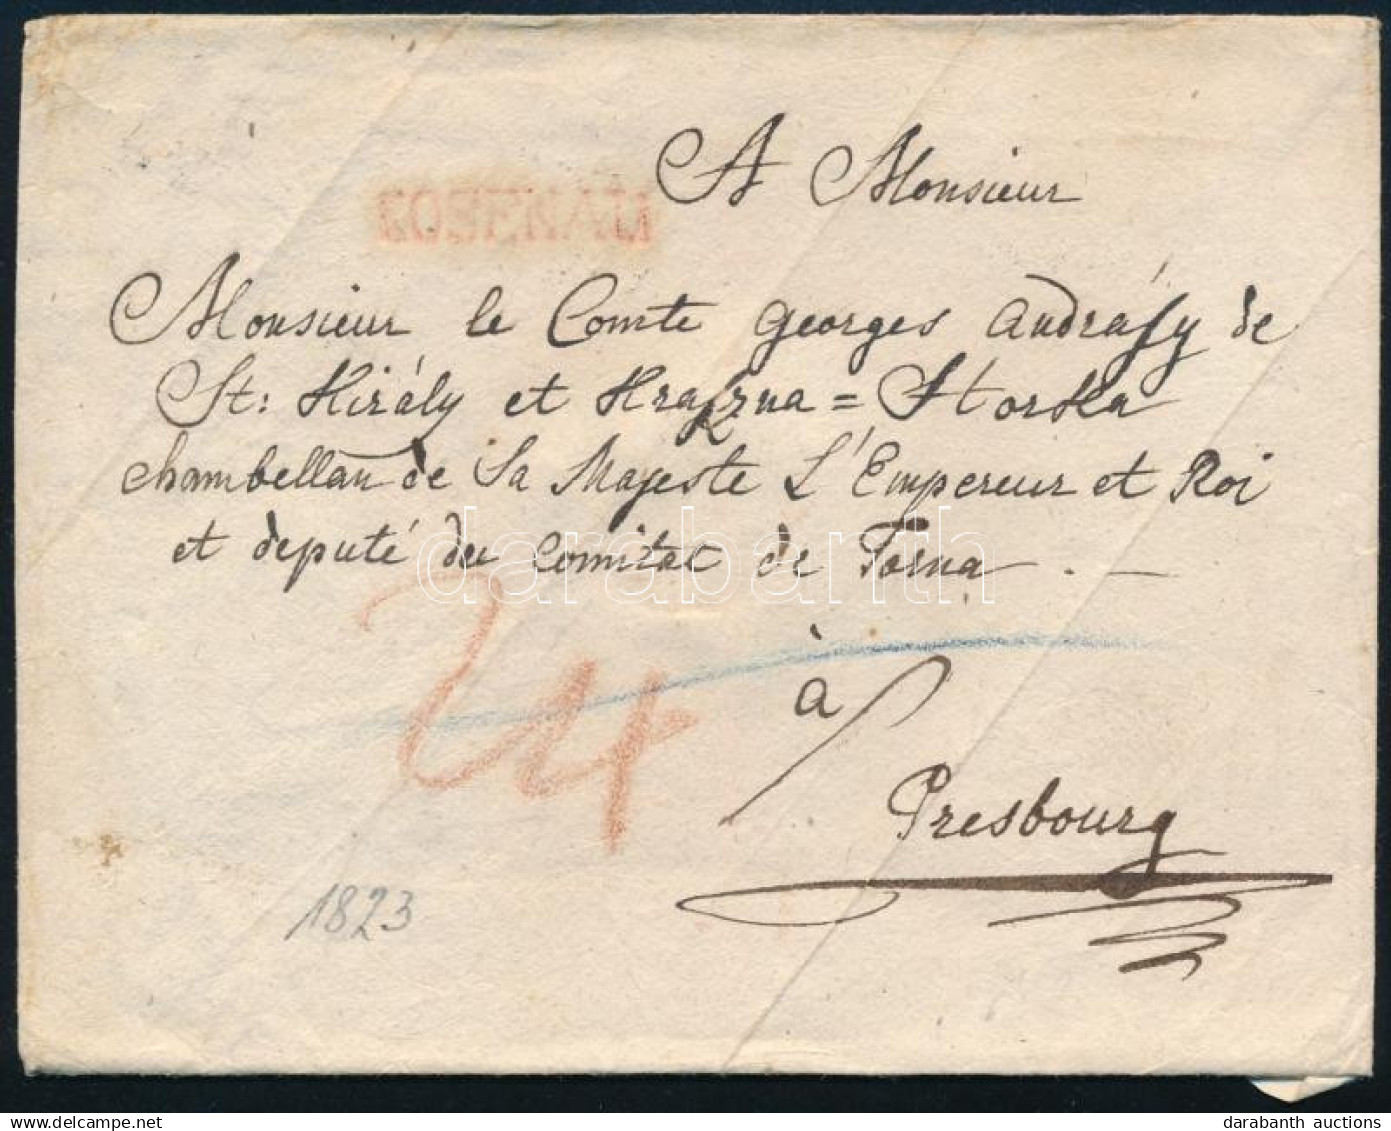 A Monsieur
ROSENAU
Monsieur le Comte Georges Andrásy de
St: Király et Kraszna = Horska
chambellan de Sa Majeste L'Empereur et Roi
et deputé du Comitat de Torna . —
darabanth
à
24
Presbourg
1823
darabanth auctions